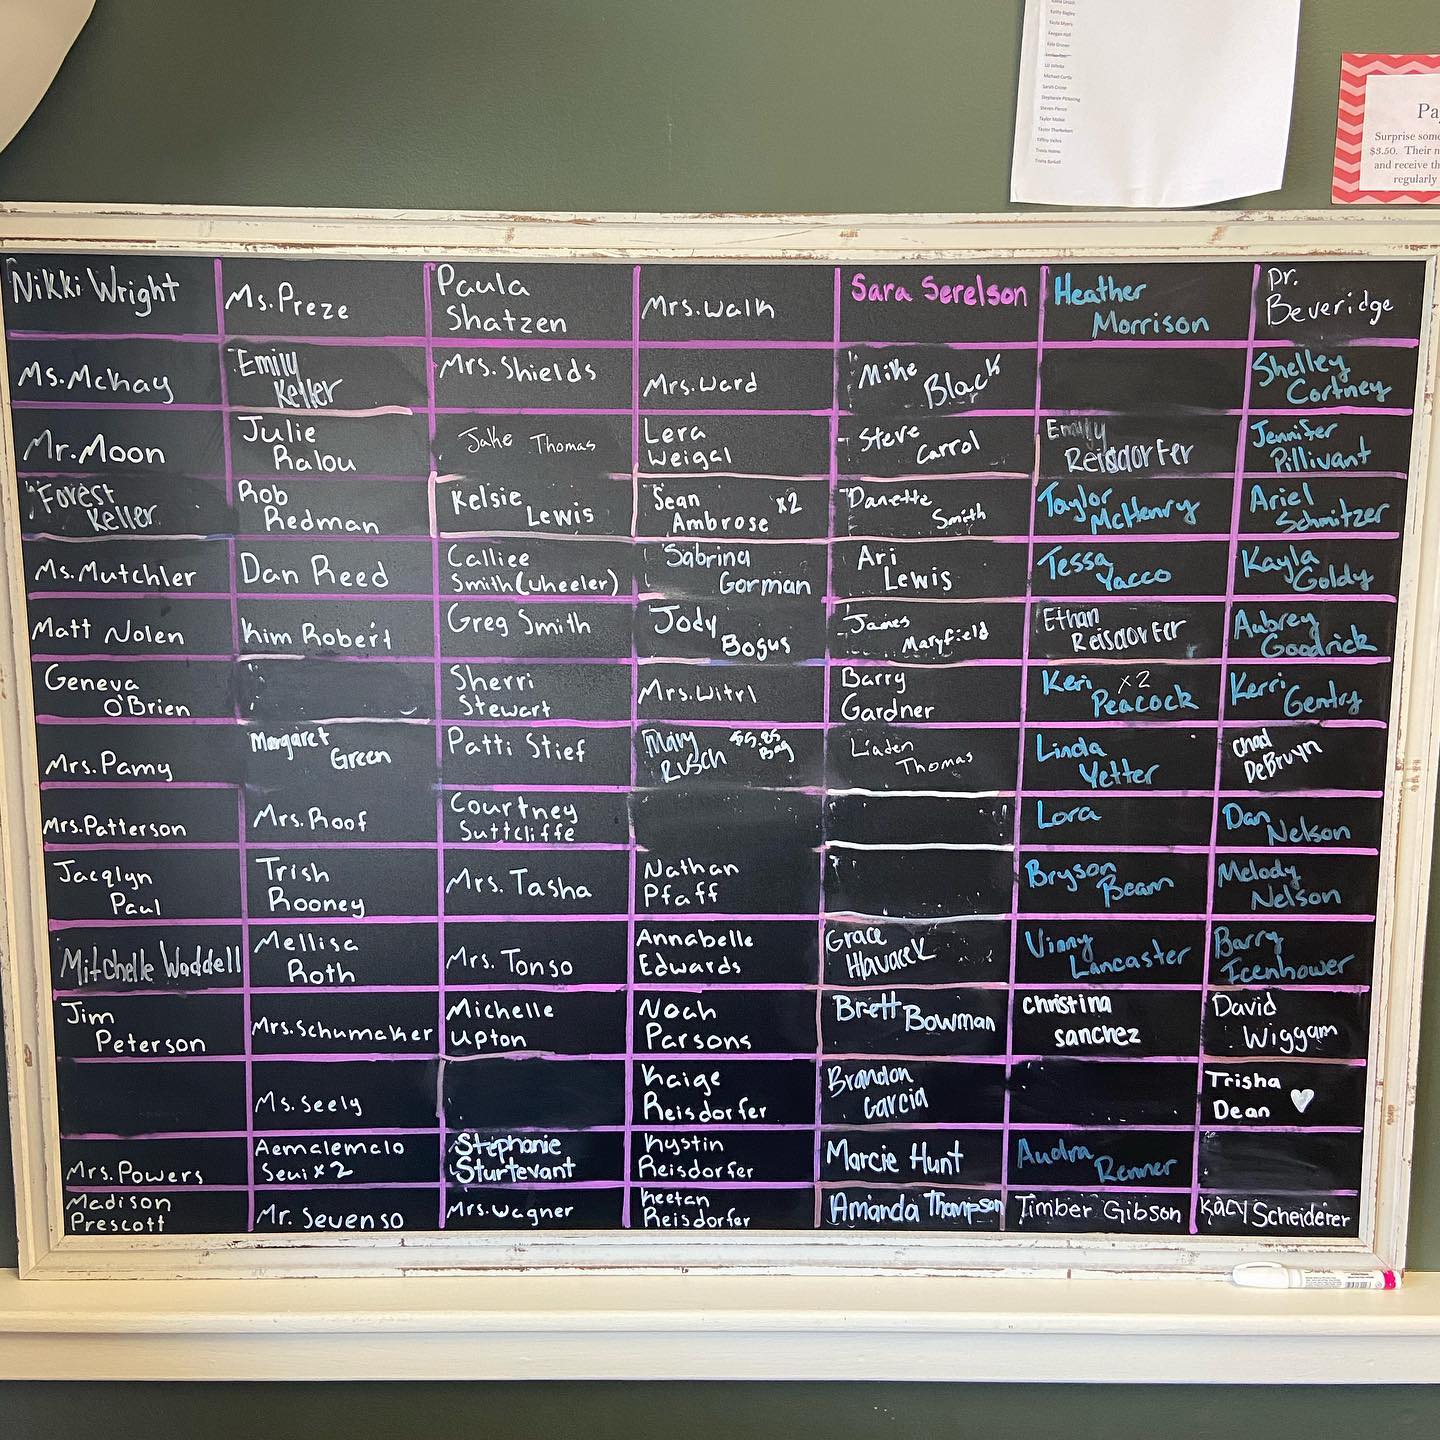 Kathy Bagley
Kayla Myers
Keegan Hall
Kyle Grover
Liz Juhnke
Michael Curtis
Sarah Crone
Stephanie Pickering
Steven Pierce
Taylor Malee
Taylor Therkelsen
Tiffiny Vehrs
Travis Holms
Trisha Barkell
Pa
Surprise some
$3.50. Their n
and receive th
regularly
Nikki Wright
Ms. Preze
Paula
Shatzen
Mrs. Walk
Sara Serelson
Heather
Morrison
Dr.
Beveridge
Ms. McKay
Emily
Keller
Mrs. Shields
Mrs. Ward
Mike
Black
Shelley
Cortney
Mr. Moon
Julie
Ralou
Jake Thomas
Lera
Weigal
Steve
Carrol
Emily
Reisdorfer
Jennifer
Pillivant
Forest
Keller
Rob
Redman
Kelsie
Lewis
Sean x2
Ambrose
Danette
Smith
Taylor
McHenry
Ariel
Schmitzer
Ms. Mutchler
Dan Reed
Calliee
Smith (Wheeler)
Sabrina
Gorman
Ari
Lewis
Tessa
Yacco
Kayla
Goldy
Matt Nolen
Kim Robert
Greg Smith
Jody
Bogus
James
Maryfield
Ethan
Reisdorfer
Aubrey
Goodrick
Geneva
O'Brien
Sherri
Stewart
Mrs. Witrl
Barry
Gardner
Keri x2
Peacock
Kerri
Gentry
Mrs. Pamy
Margaret
Green
Patti Stief
Mary $5.85
Rusch Bag
Liaden
Thomas
Linda
Yetter
Chad
DeBruyn
Mrs. Patterson
Mrs. Roof
Courtney
Suttcliffe
Lora
Dan
Nelson
Jacqlyn
Paul
Trish
Rooney
Mrs. Tasha
Nathan
Pfaff
Bryson
Beam
Melody
Nelson
Mitchelle Waddell
Mellisa
Roth
Mrs. Tonso
Annabelle
Edwards
Grace
Hlavacek
Vinny
Lancaster
Barry
Icenhower
Jim
Peterson
Mrs. Schumaker
Michelle
Upton
Noah
Parsons
Brett Bowman
Christina
Sanchez
David
Wiggam
Ms. Seely
Kaige
Reisdorfer
Brandon
Garcia
Trisha
Dean
Mrs. Powers
Aemalemalo
Seui x2
Stephanie
Sturtevant
Kystin
Reisdorfer
Marcie Hunt
Audra
Renner
Madison
Prescott
Mr. Sevenso
Mrs. Wagner
Keetan
Reisdorfer
Amanda Thompson
Timber Gibson
Kacy Scheiderer